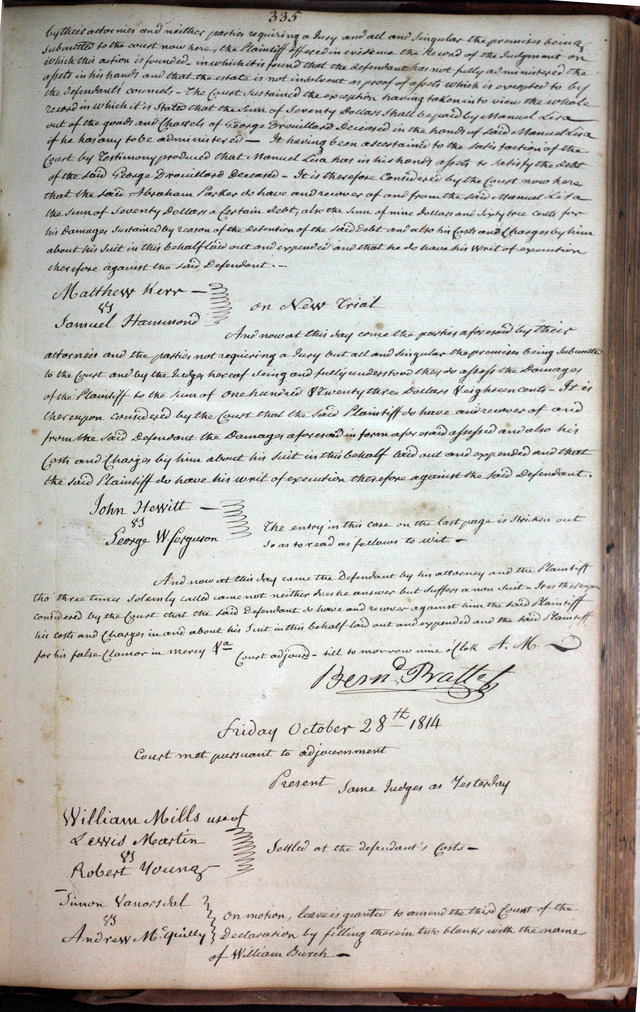 335
by their attornies and neither parties requiring a Jury and all and Singular the premises being
Submitted to the court now here, the Plaintiff offered in evidence the Record of the Judgment on
which this action is founded in which it is found that the defendant has not fully administered the
assets in his hands and that the estate is not insolvent as proof of assets which is excepted to by
the defendants counsels - The Court Sustained the exception having taken into view the whole
record in which it is Stated that the Sum of Seventy Dollars Shall be paid by Manuel Lisa
out of the goods and Chatels of George Drouillard Deceased in the hands of Said Manuel Lisa
if he has any to be administered - It having been ascertained to the Satisfaction of the
Court by Testimony produced that Manuel Lisa has in his hands assets to Satisfy the debt
of the Said George Drouillard Deceased - It is therefore Considered by the Court now here
that the Said Abraham Parker do have and recover of and from the Said Manuel Lisa
the Sum of Seventy Dollars a Certain debt, also the Sum of nine dollars and Sixty two cents for
his Damages Sustained by reason of the detention of the Said debt and also his Costs and Charges by him
about his Suit in this behalf laid out and expended and that he do have his Writ of execution
therefore against the Said Defendant. -
Matthew Kerr -
vs
Samuel Hammond
on New Trial
And now at this day come the parties aforesaid by their
attorneis and the parties not requiring a Jury but all and Singular the premises being Submitted
to the Court and by the Judges hereof Seing and fully understood they do assess the Damages
of the Plaintiff to the Sum of one hundred & twenty three Dollars & eighteen cents - It is
thereupon considered by the Court that the Said Plaintiff do have and recover of and
from the Said Defendant the Damages aforesaid in form aforesaid assessed and also his
Costs and Charges by him about his Suit in this behalf laid out and expended and that
the Said Plaintiff do have his writ of execution therefore against the Said defendant.
John Hewitt -
vs
George W Ferguson
The entry in this case on the last page is Stricken out
So as to read as follows to wit -
And now at this day came the defendant by his attorney and the Plaintiff
tho three times Solemnly called came not neither does he answer but Suffers a non Suit - It is thereupon
considered by the Court that the Said defendant do have and recover against him the Said Plaintiff
his costs and Charges in and about his Suit in this behalf laid out and expended and the Said Plaintiff
for his false Clamor in mercy &a
Court adjourd - till to morrow nine oClok A. M.
Bernd. Pratte
Friday October 28th 1814
Court met pursuant to adjournment
Present Same Judges as Yesterday
William Mills use of
Lewis Martin
vs
Robert Young
Settled at the defendant's Costs -
Simon Vanorsdal
vs
Andrew Mc.Quilly
On motion, leave is granted to amend the third Count of the
Declaration by filling therein two blanks with the name
of William Burch -